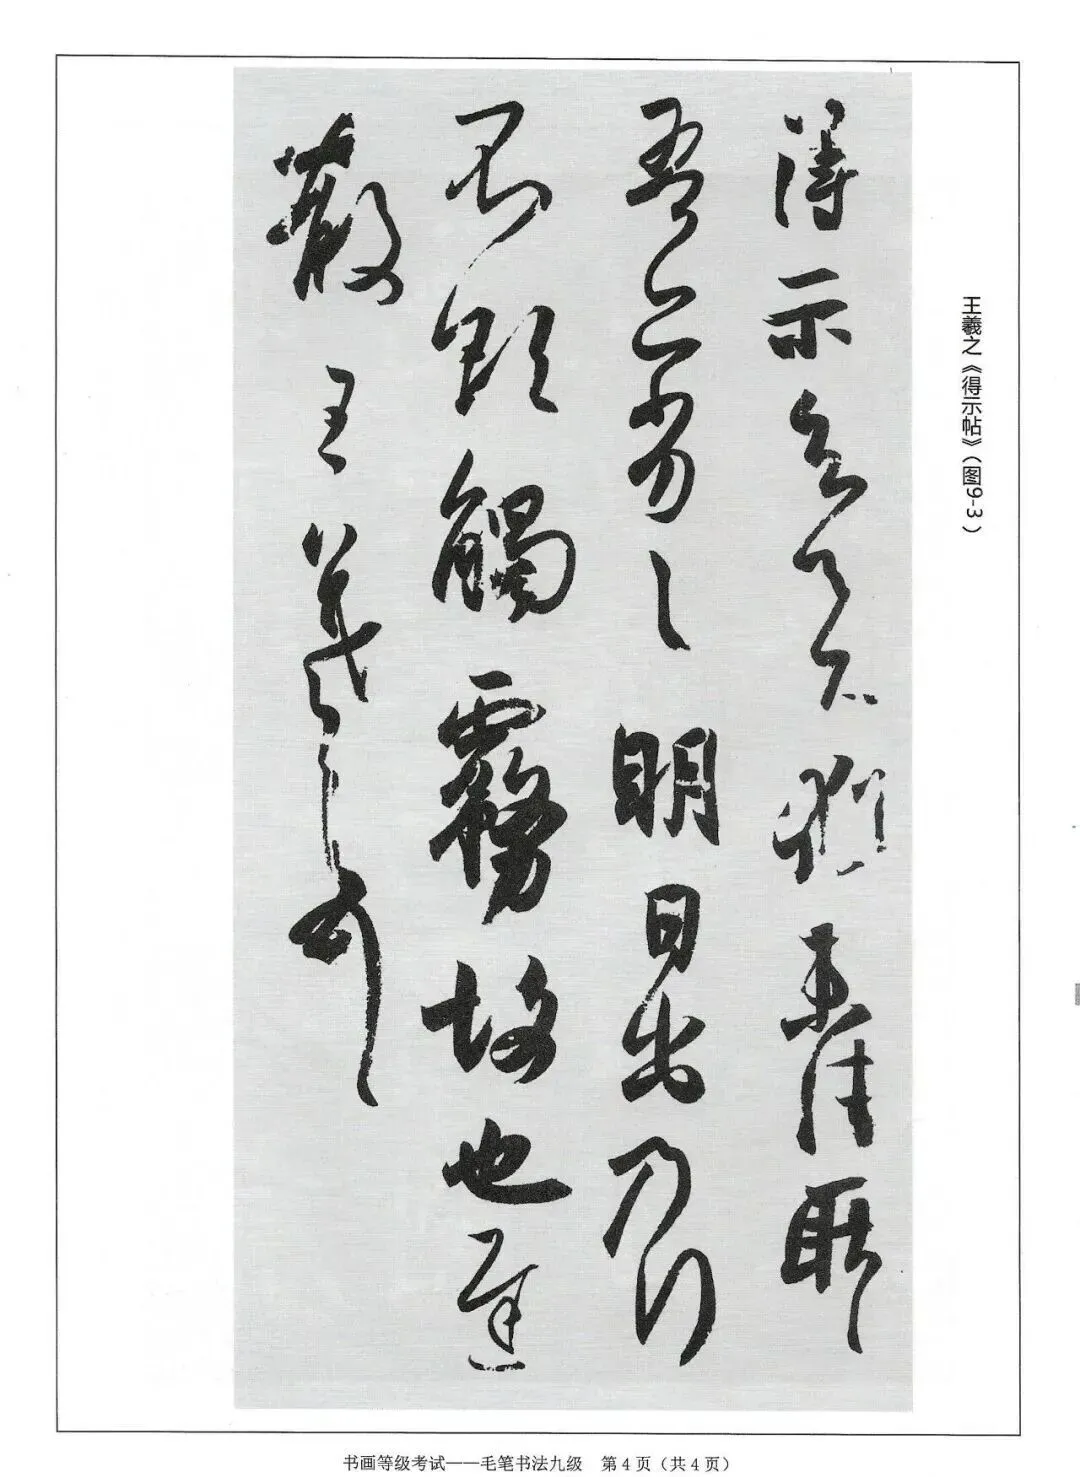 王羲之《得示帖》（图9-3）
得示知足下猶未佳耿耿
吾亦劣劣明日出乃行
不欲觸霧故也遲
散王羲之頓首
书画等级考试——毛笔书法九级 第4页（共4页）